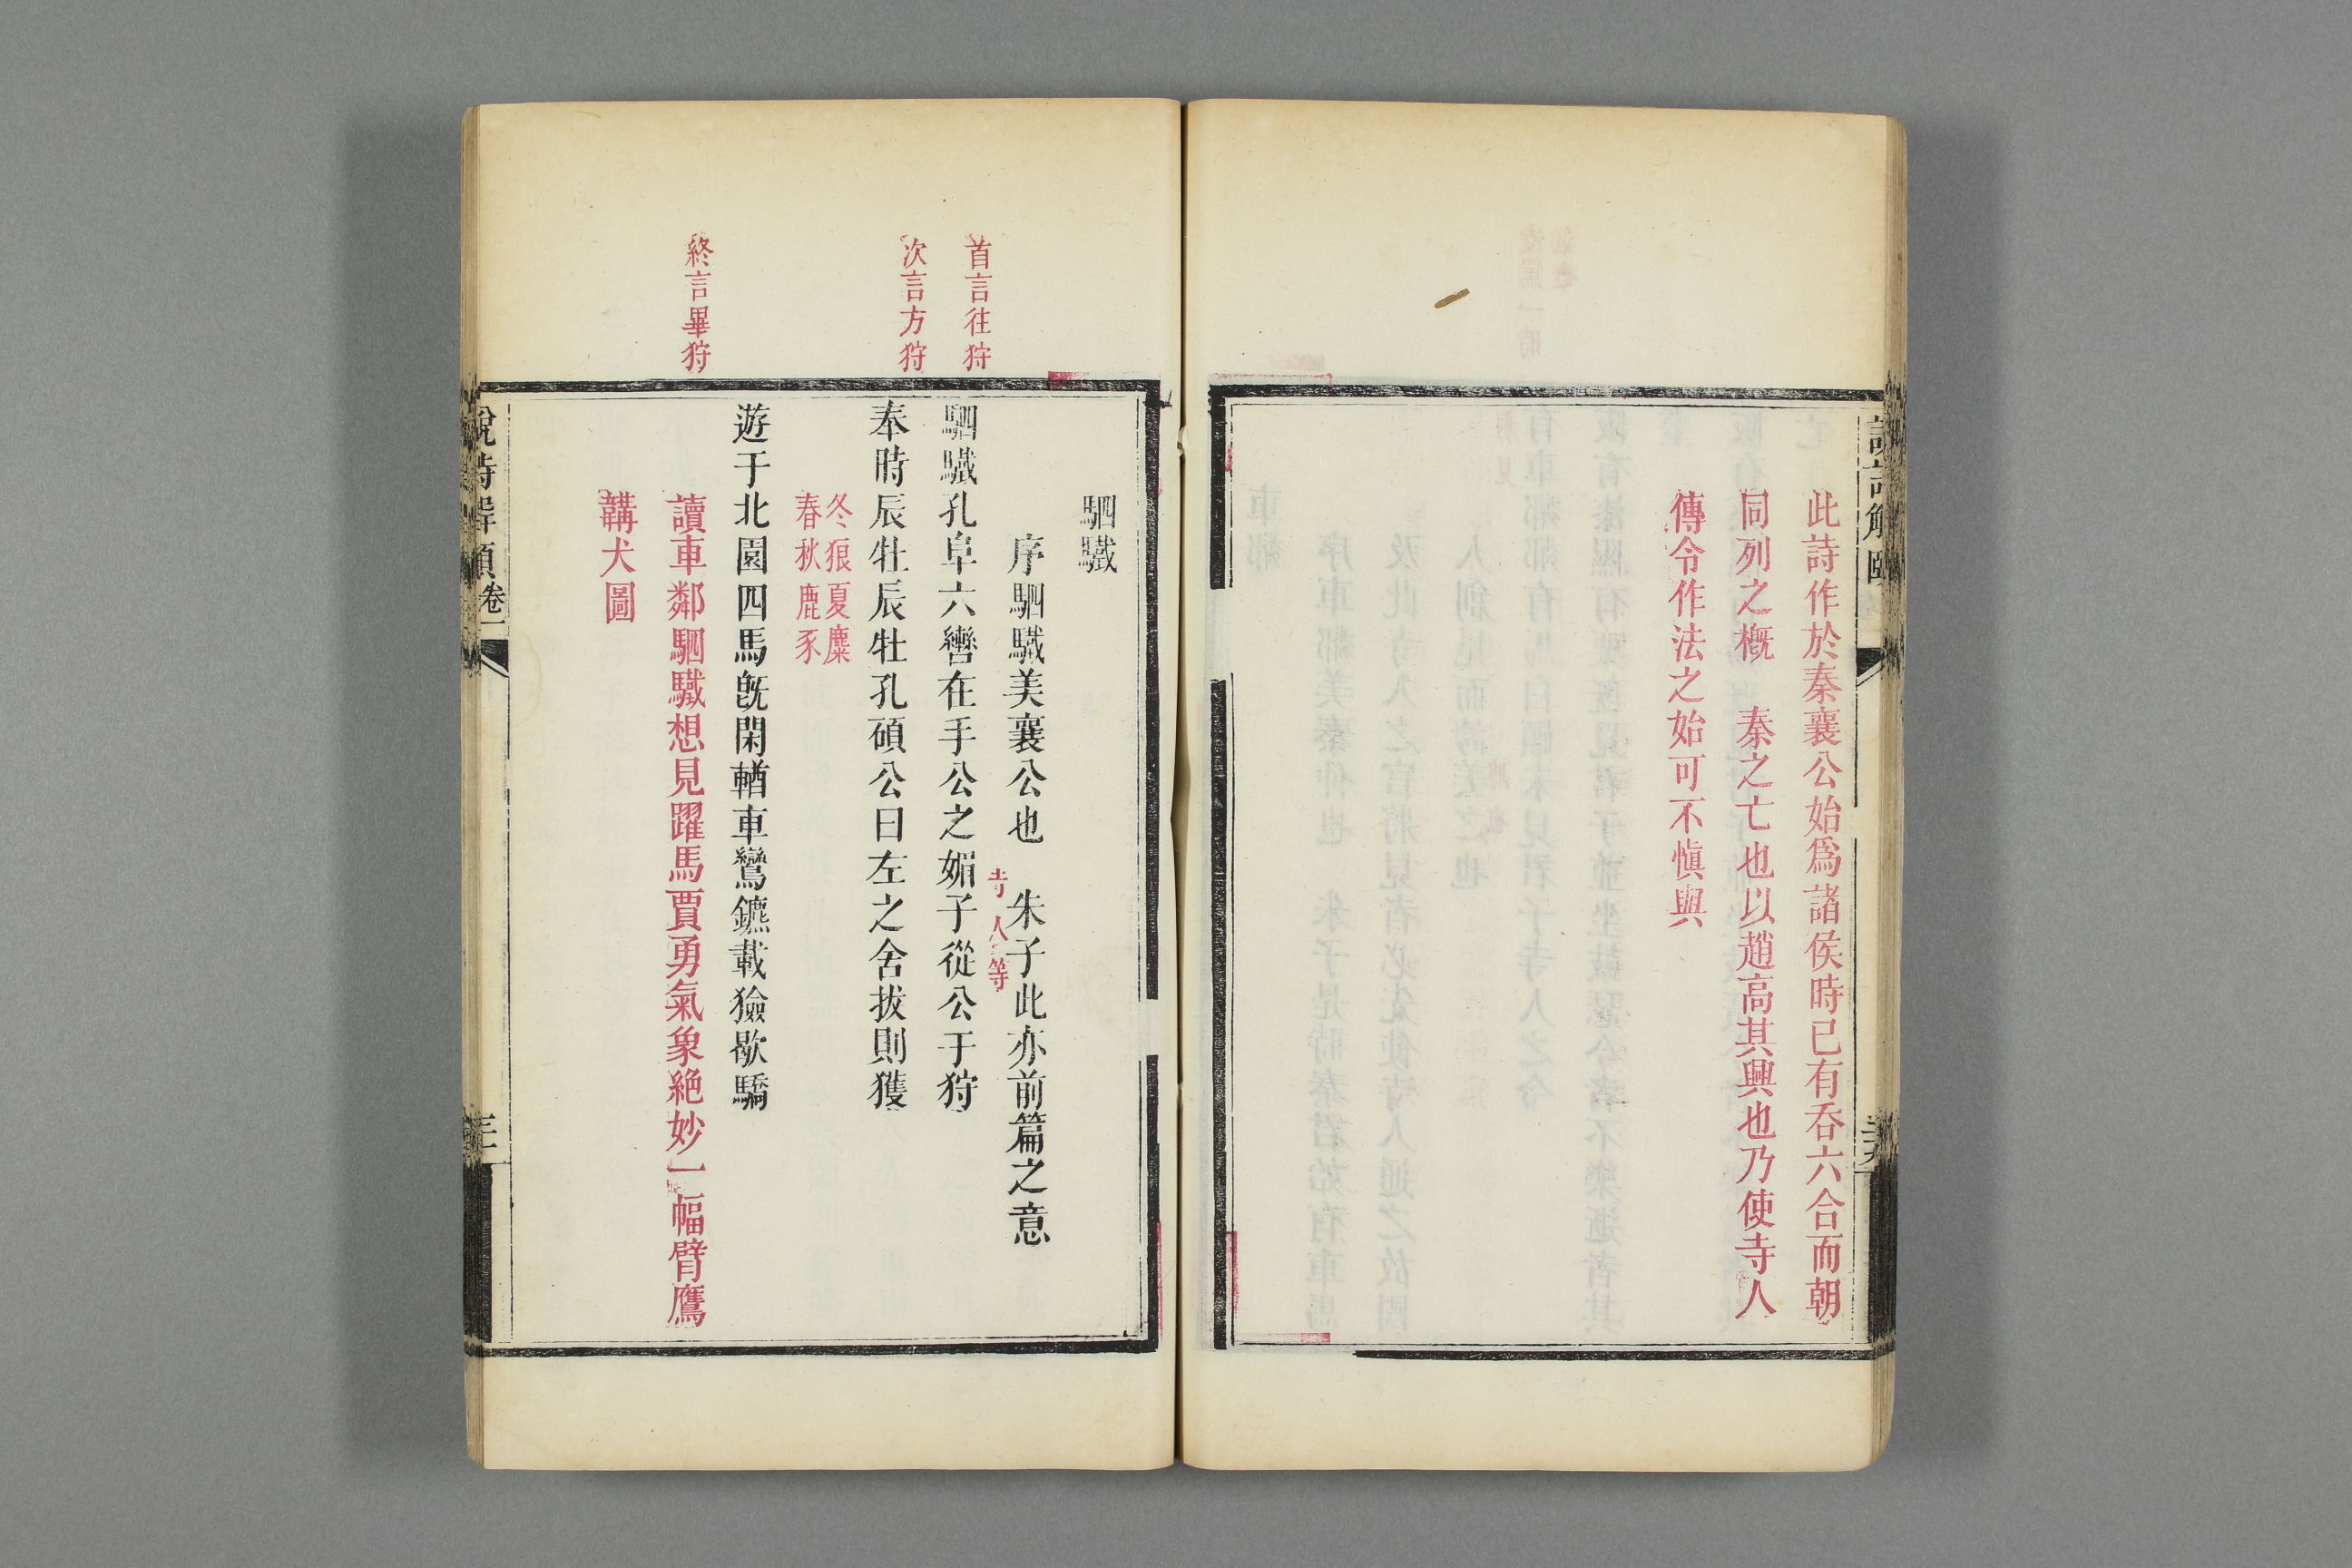 此詩作於秦襄公始爲諸侯時已有呑六合而朝
同列之槪　秦之亡也以趙高其興也乃使寺人
傳令作法之始可不愼與
駟驖
序駟驖美襄公也　朱子此亦前篇之意
寺人等
首言往狩
駟驖孔阜六轡在手公之媚子從公于狩
次言方狩
奉時辰牡辰牡孔碩公曰左之舍拔則獲
冬狼夏麋
春秋鹿豕
遊于北園四馬旣閑輶車鸞鑣載獫歇驕
終言畢狩
讀車鄰駟驖想見躍馬賈勇氣象絶妙一幅臂鷹
韝犬圖
說詩解頤卷一